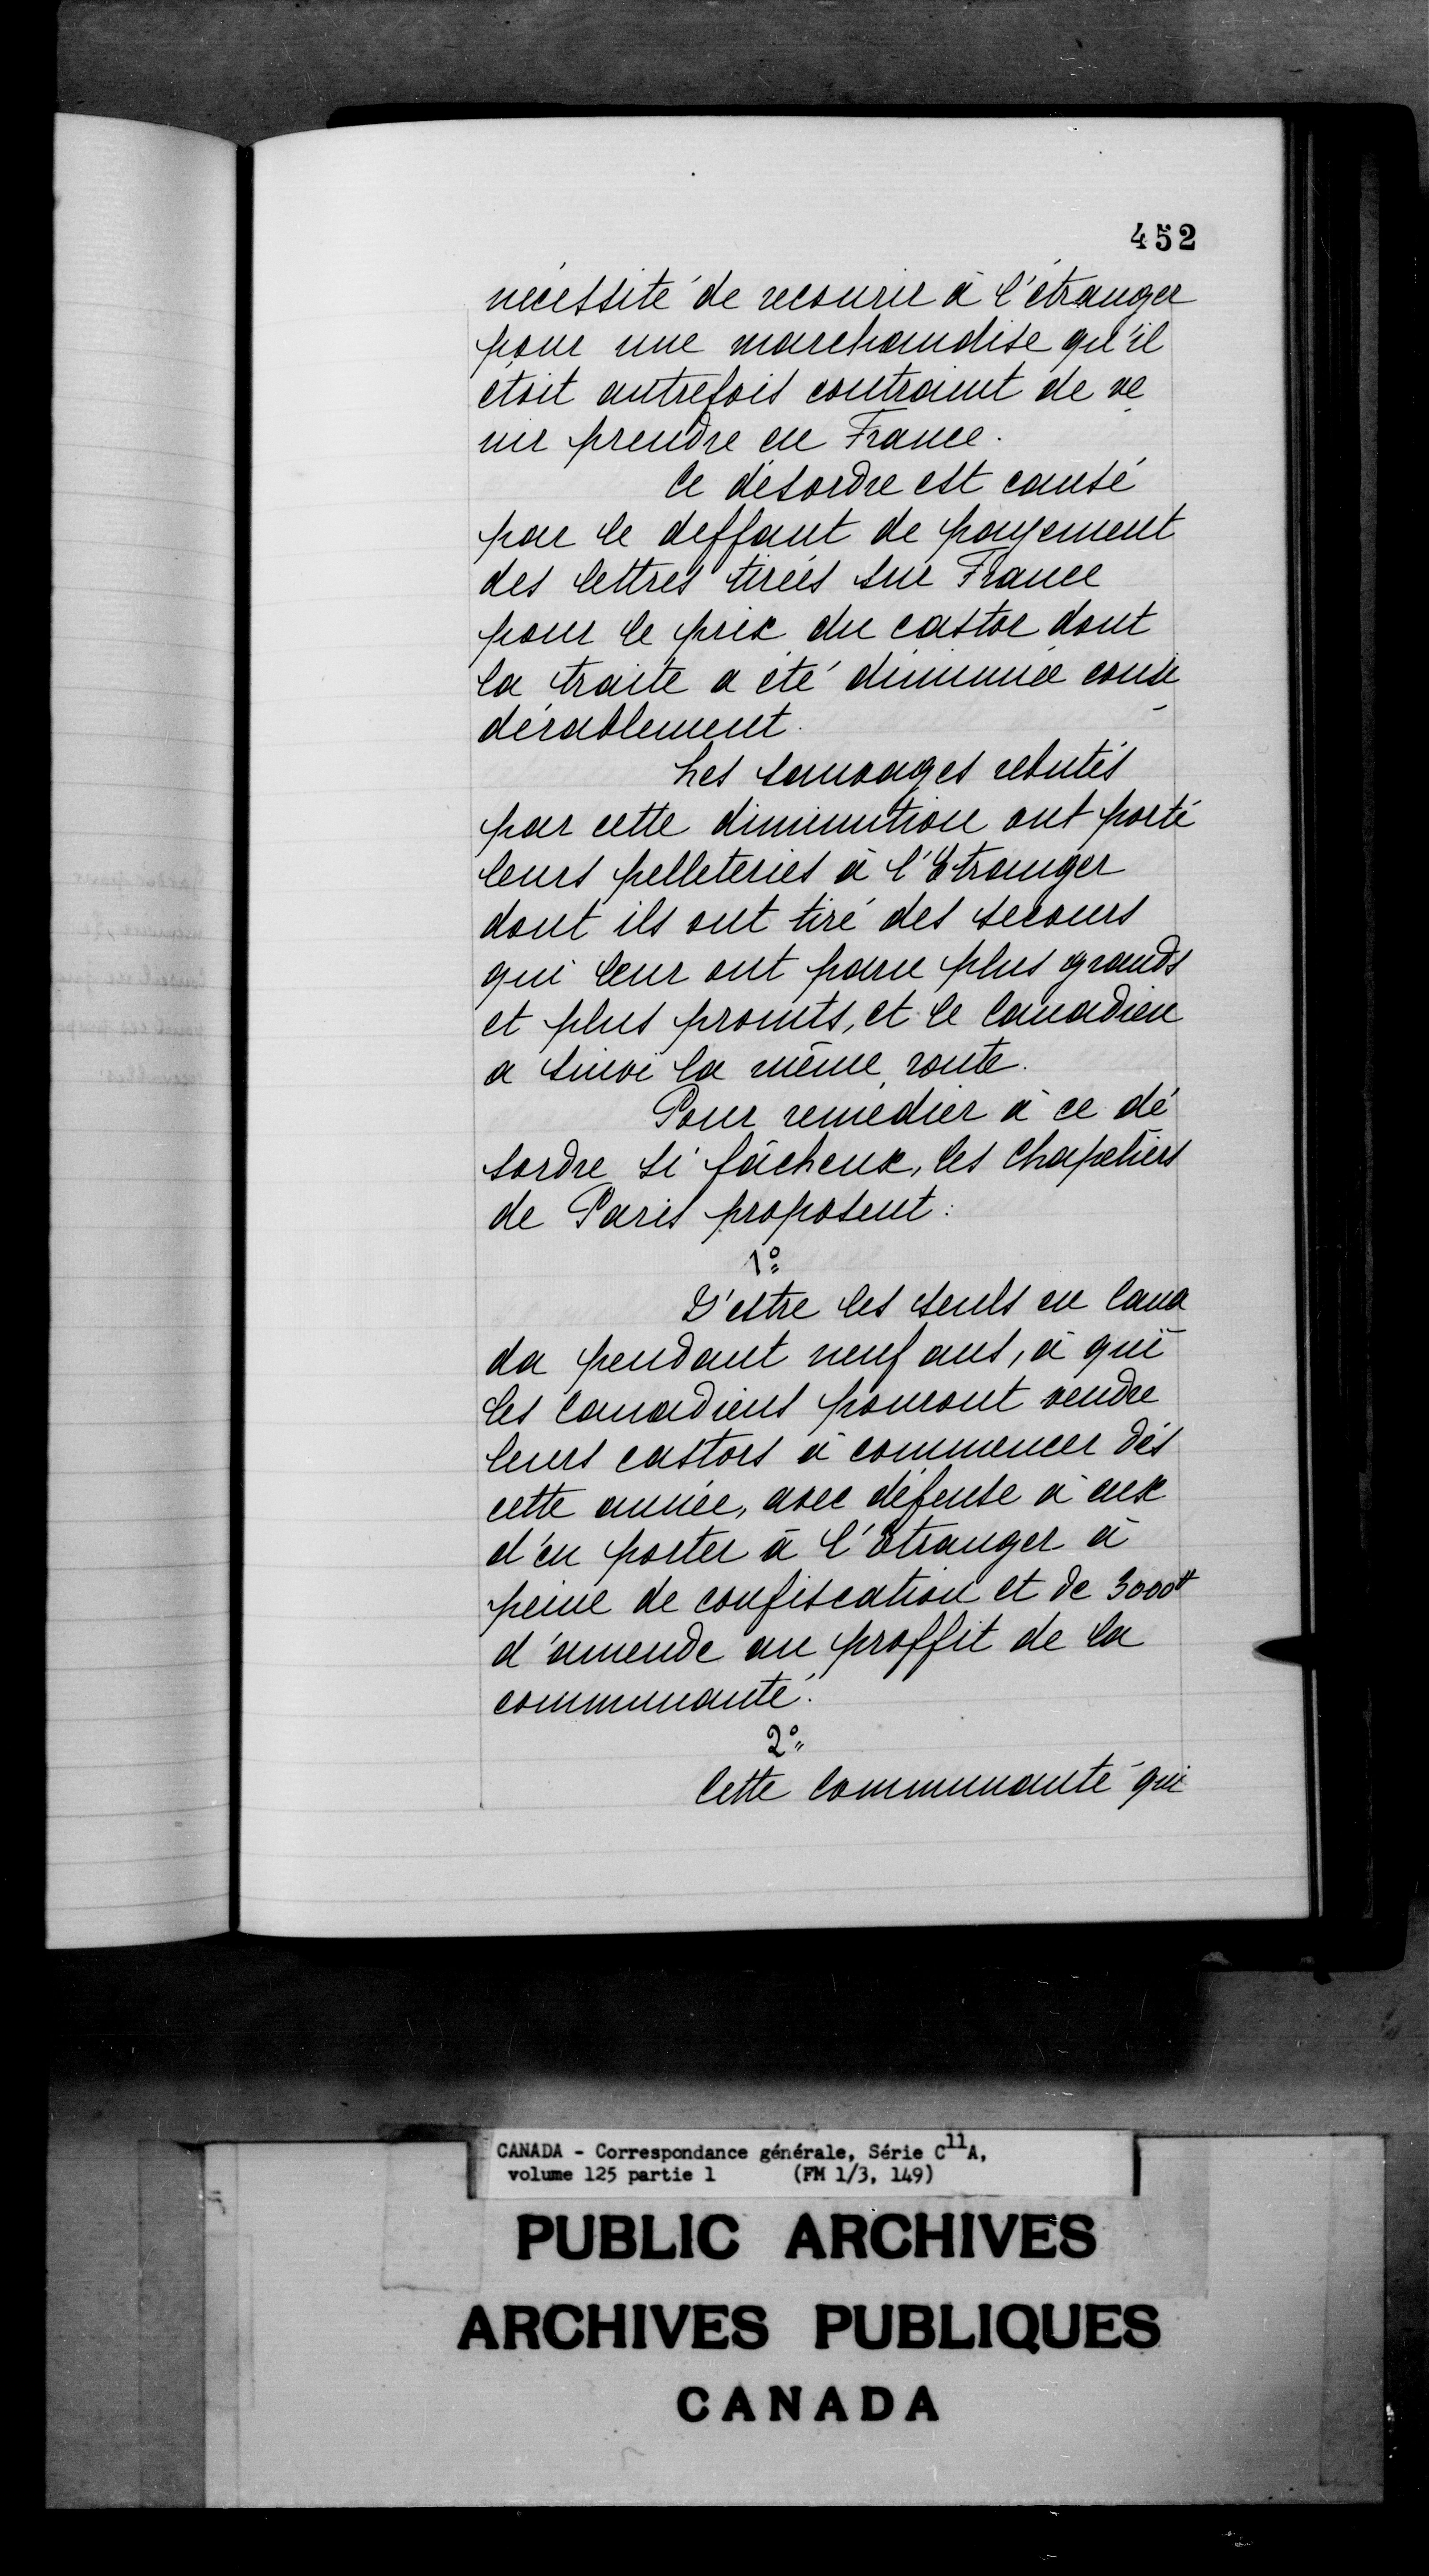 452
nécessité de recourir à l'étranger
pour une marchandise qu'il
étoit autrefois contraint de ve
nir prendre en France.
Ce désordre est causé
par le deffaut de payement
des lettres tirées sur France
pour le prix du castor dont
la traite a été diminuée consi-
dérablement.
Les sauvages rebutés
par cette diminution ont porté
leurs pelleteries à l'Etranger
dont ils ont tiré des secours
qui leur ont paru plus grands
et plus promts, et le Canadien
a suivi la même route.
Pour remédier à ce dé
sordre si fâcheux, les Chapeliers
de Paris proposent:
1º
D'estre les seuls en Cana
da pendant neuf ans, à qui
les Canadiens pouront vendre
leurs castors à commencer dés
cette année, avec défense à eux
d'en porter à l'Etranger à
peine de confiscation et de 3000#
d'amende au proffit de la
communauté.
2º
Cette communauté qui
CANADA - Correspondance générale, Série C11A,
volume 125 partie 1 (FM 1/3, 149)
PUBLIC ARCHIVES
ARCHIVES PUBLIQUES
CANADA